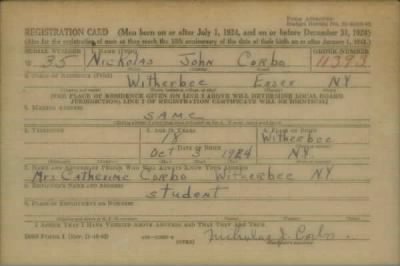 REGISTRATION CARD (Men born on or after July 1, 1924, and on or before December 31, 1924)
SERIAL NUMBER 1. NAME (Print) ORDER NUMBER
35 Nickolas John Corbo 11393
2. PLACE OF RESIDENCE (Print)
Witherbee Essex NY
[THE PLACE OF RESIDENCE GIVEN ON LINE 2 ABOVE WILL DETERMINE LOCAL BOARD
JURISDICTION; LINE 2 OF REGISTRATION CERTIFICATE WILL BE IDENTICAL]
3. MAILING ADDRESS
SAME
4. TELEPHONE 5. AGE IN YEARS 6. PLACE OF BIRTH
18 Witherbee
DATE OF BIRTH
Oct 3 1924 NY.
7. NAME AND ADDRESS OF PERSON WHO WILL ALWAYS KNOW YOUR ADDRESS
Mrs Catherine Corbo Witherbee NY
8. EMPLOYER'S NAME AND ADDRESS
student
9. PLACE OF EMPLOYMENT OR BUSINESS
I AFFIRM THAT I HAVE VERIFIED ABOVE ANSWERS AND THAT THEY ARE TRUE.
DSS Form 1 (OVER) Nicholas J. Corbo